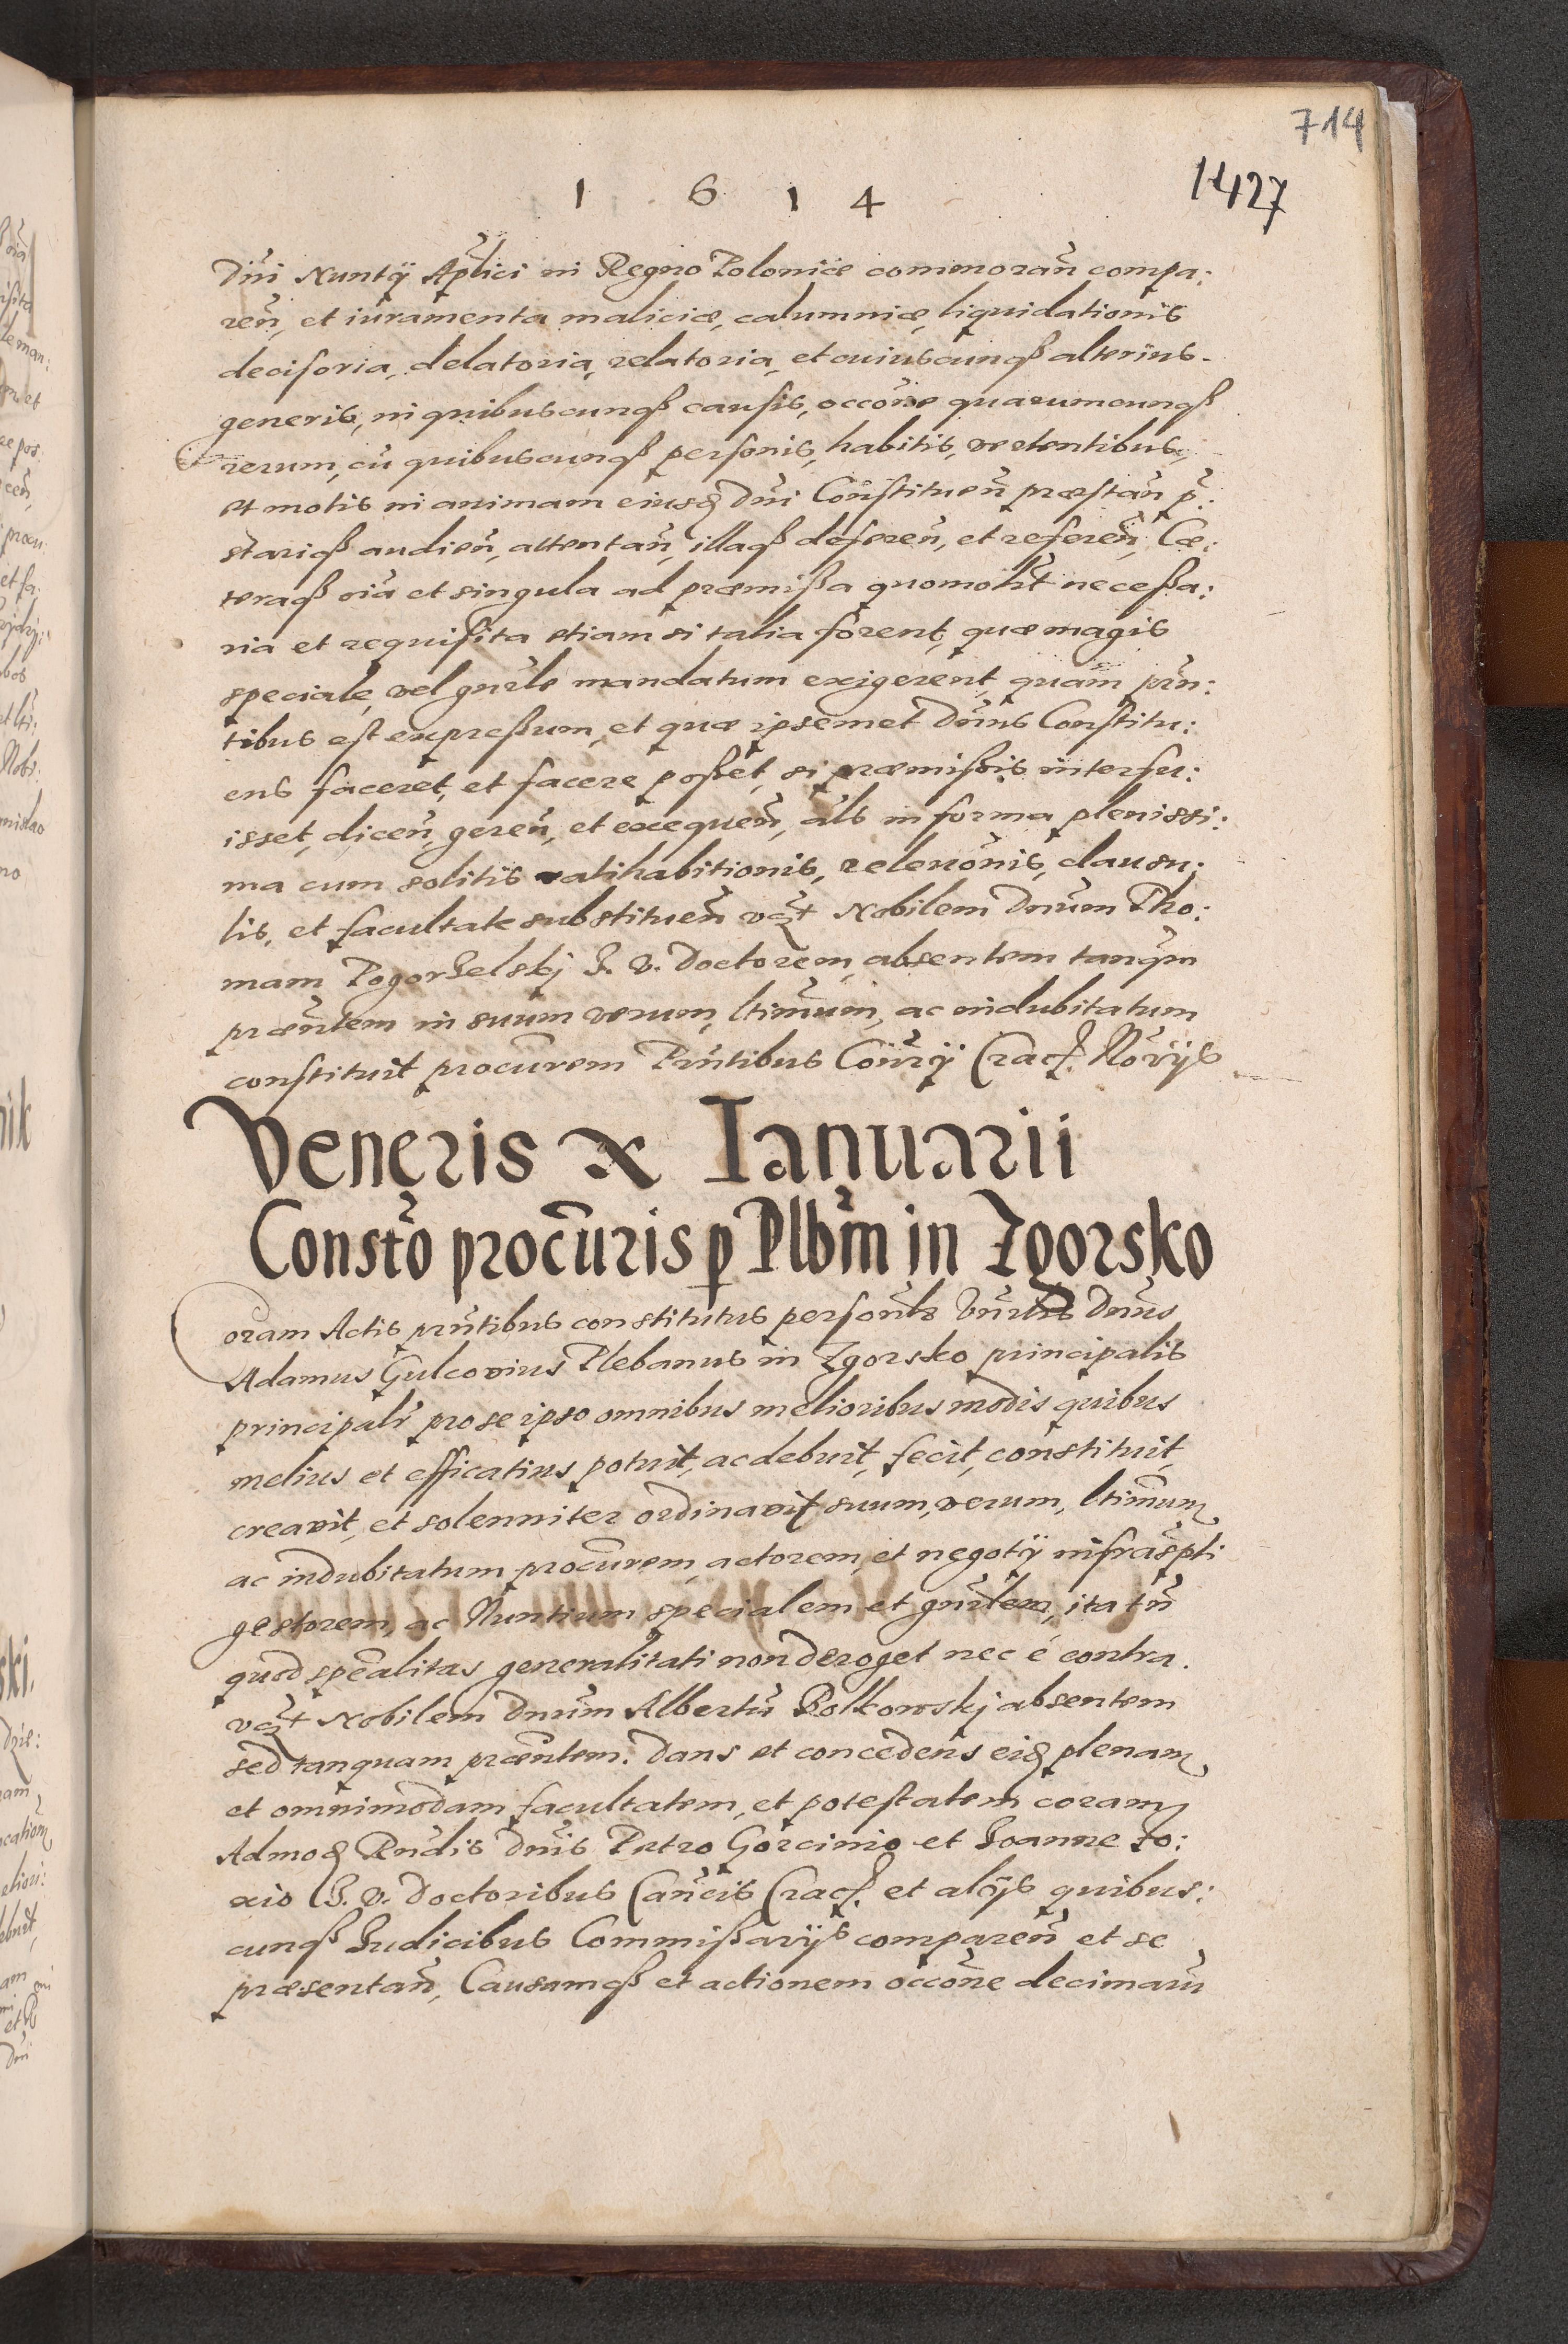 714
1614
1427
Dñi Nuntij Aplici in Regno Poloniæ commoran̄ compa:
ren̄, et iuramenta maliciæ, calumniæ, liquidationis
decisoria, delatoria, relatoria, et cuiuscunqꝫ alterius
generis, in quibuscunqꝫ causis, occōne quarumcunqꝫ
rerum, cū quibuscunqꝫ personis, habitis, vertentibus,
et motis in animam eiusd dñi Constituen̄ præstan̄ p̄:
stariqꝫ audien̄, attentan̄, illaqꝫ deferen̄, et referen̄, Cæ:
teraqꝫ oīa et singula ad præmissa quomolt̄ necessa:
ria et requisita etiam si talia forent, quæ magis
speciale, vel gnāle mandatum exigerent, quam prn̄:
tibus est expressum, et quæ ipsemet Dn̄us Constitu:
ens faceret, et facere posset, si præmissis interfu:
isset, dicen̄, geren̄, et exequen̄, als in forma plenissi:
ma cum solitis ratihabitionis, releuōnis, clausu:
lis, et facultate substituen̄ vꝫt Nobilem Dnūm Tho:
mam Pogorzelskj J. V. Doctorem, absentem tanq̄m
præn̄tem in suum verum, ltimūm, ac indubitatum
constituit procūrem Prn̄tibus Coūrij Cracꝭ. Nōrijs
Veneris X Ianuarii
Constō procūris p Plbm̄ in Zgorsko
Coram Actis prn̄tibus constitutus personlr̄ Vnrlis Dnūs
Adamus Gulcovius Plebanus in Zgorsko principalis
principalr̄ pro se ipso omnibus melioribus modis quibus
melius et efficatius potuit, ac debuit, fecit, constituit,
creavit, et solenniter ordinavit suum, verum, ltimūm
ac indubitatum procūrem, actorem, et negotij infrasp̄ti
gestorem, ac Nuntium specialem et gnrālem, ita tn̄
quod speālitas generalitati non deroget nec é contra.
vꝫt Nobilem Dnūm Albertū Polkowskj absentem
sed tanquam præn̄tem. Dans et concedens eid plenam
et omnimodam facultatem, et potestatem coram
Admod Rn̄dis Dnīs Petro Gorcinio et Joanne Fo:
xio J. V. Doctoribus Canc̄is Cracꝭ. et alijs quibus:
cunqꝫ Judicibus Commissarijs comparen̄ et se
præsentan̄, Causamqꝫ et actionem occōne decimarū